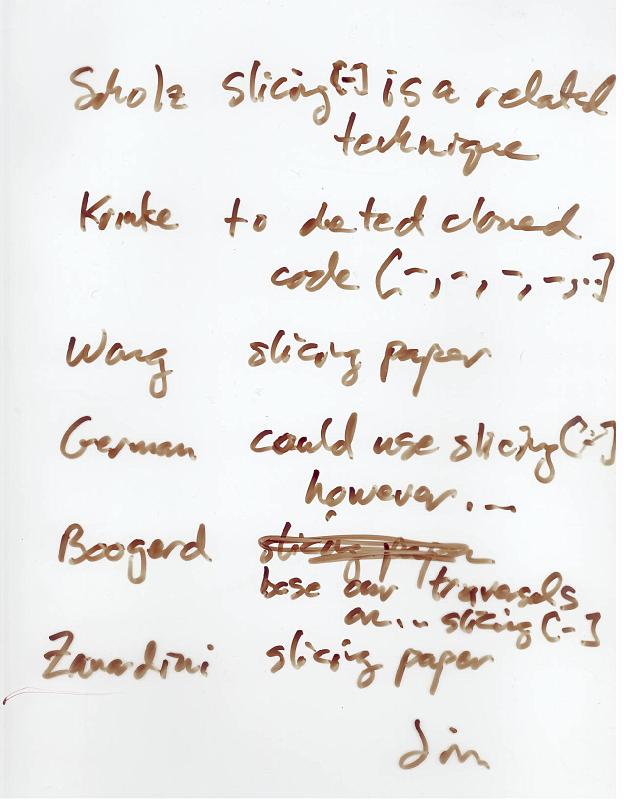 Scholz slicing[-] is a related
technique
Krinke to detect cloned
code [-,-,-,-,..]
Wang slicing paper
German could use slicing[-]
however...
Boogerd slicing paper
base our traversals
on... slicing [-]
Zanardini slicing paper
Jim